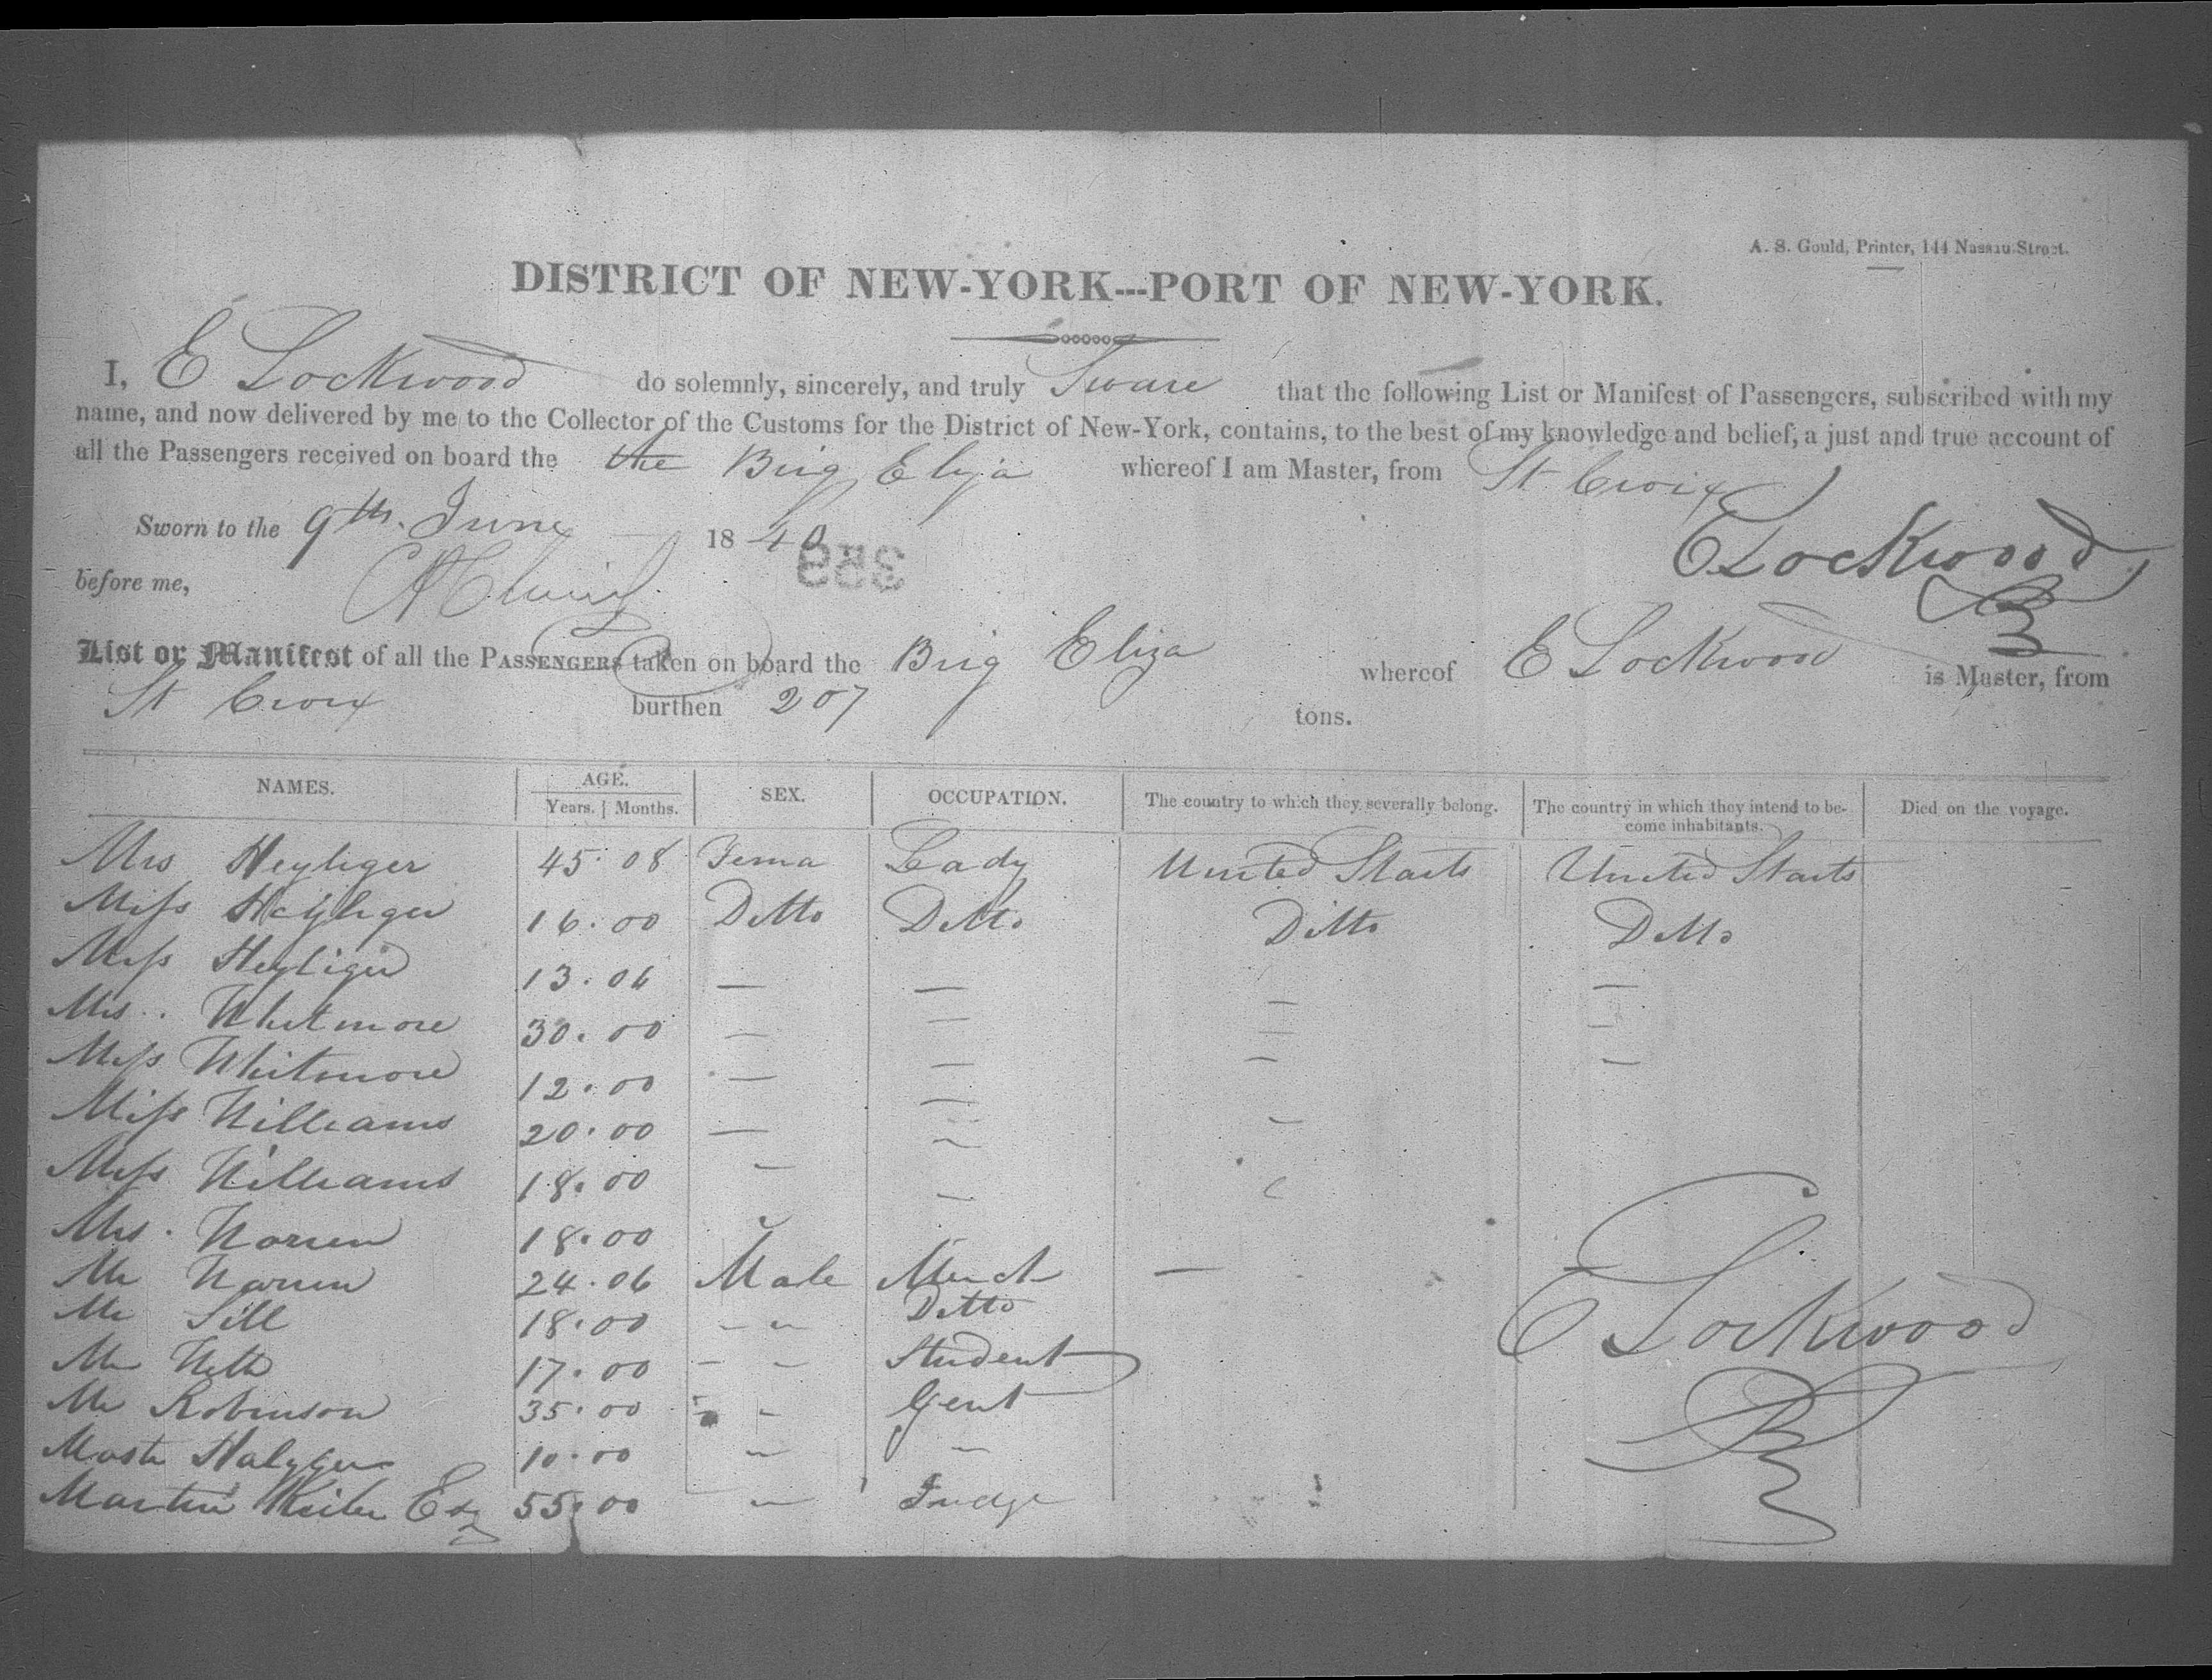 A. S. Gould, Printer, 144 Nassau-Street.
DISTRICT OF NEW-YORK---PORT OF NEW-YORK.
I, E Lockwood do solemnly, sincerely, and truly Sware that the following List or Manifest of Passengers, subscribed with my
name, and now delivered by me to the Collector of the Customs for the District of New-York, contains, to the best of my knowledge and belief, a just and true account of
all the Passengers received on board the the Brig Eliza whereof I am Master, from St Croix
Sworn to the 9th. June 1840
E Lockwood
before me,
List or Manifest of all the PASSENGERS taken on board the Brig Eliza whereof E Lockwood is Master, from
St Croix burthen 207 tons.
NAMES. AGE. SEX. OCCUPATION. The country to which they severally belong. The country in which they intend to be- Died on the voyage.
Years. | Months. come inhabitants.
Mrs Heyliger 45.08 Fema Lady United Staits United Staits
Miss Heyliger 16.00 Ditto Ditto Ditto Ditto
Miss Heyliger 13.06 — — — —
Mrs.. Whitmore 30.00 — — — —
Miss Whitmore 12.00 — — — —
Miss Williams 20.00 — — —
Miss Williams 18.00 — —
Mrs. Warren 18.00
Mr Warren 24.06 Male Merct —
Mr Sill 18.00 – – Ditto
Mr 17.00 – – Student
Mr Robinson 35.00 – – Gent
Mastr 10.00 – –
Martin Esq 55.00 – Judge
E Lockwood